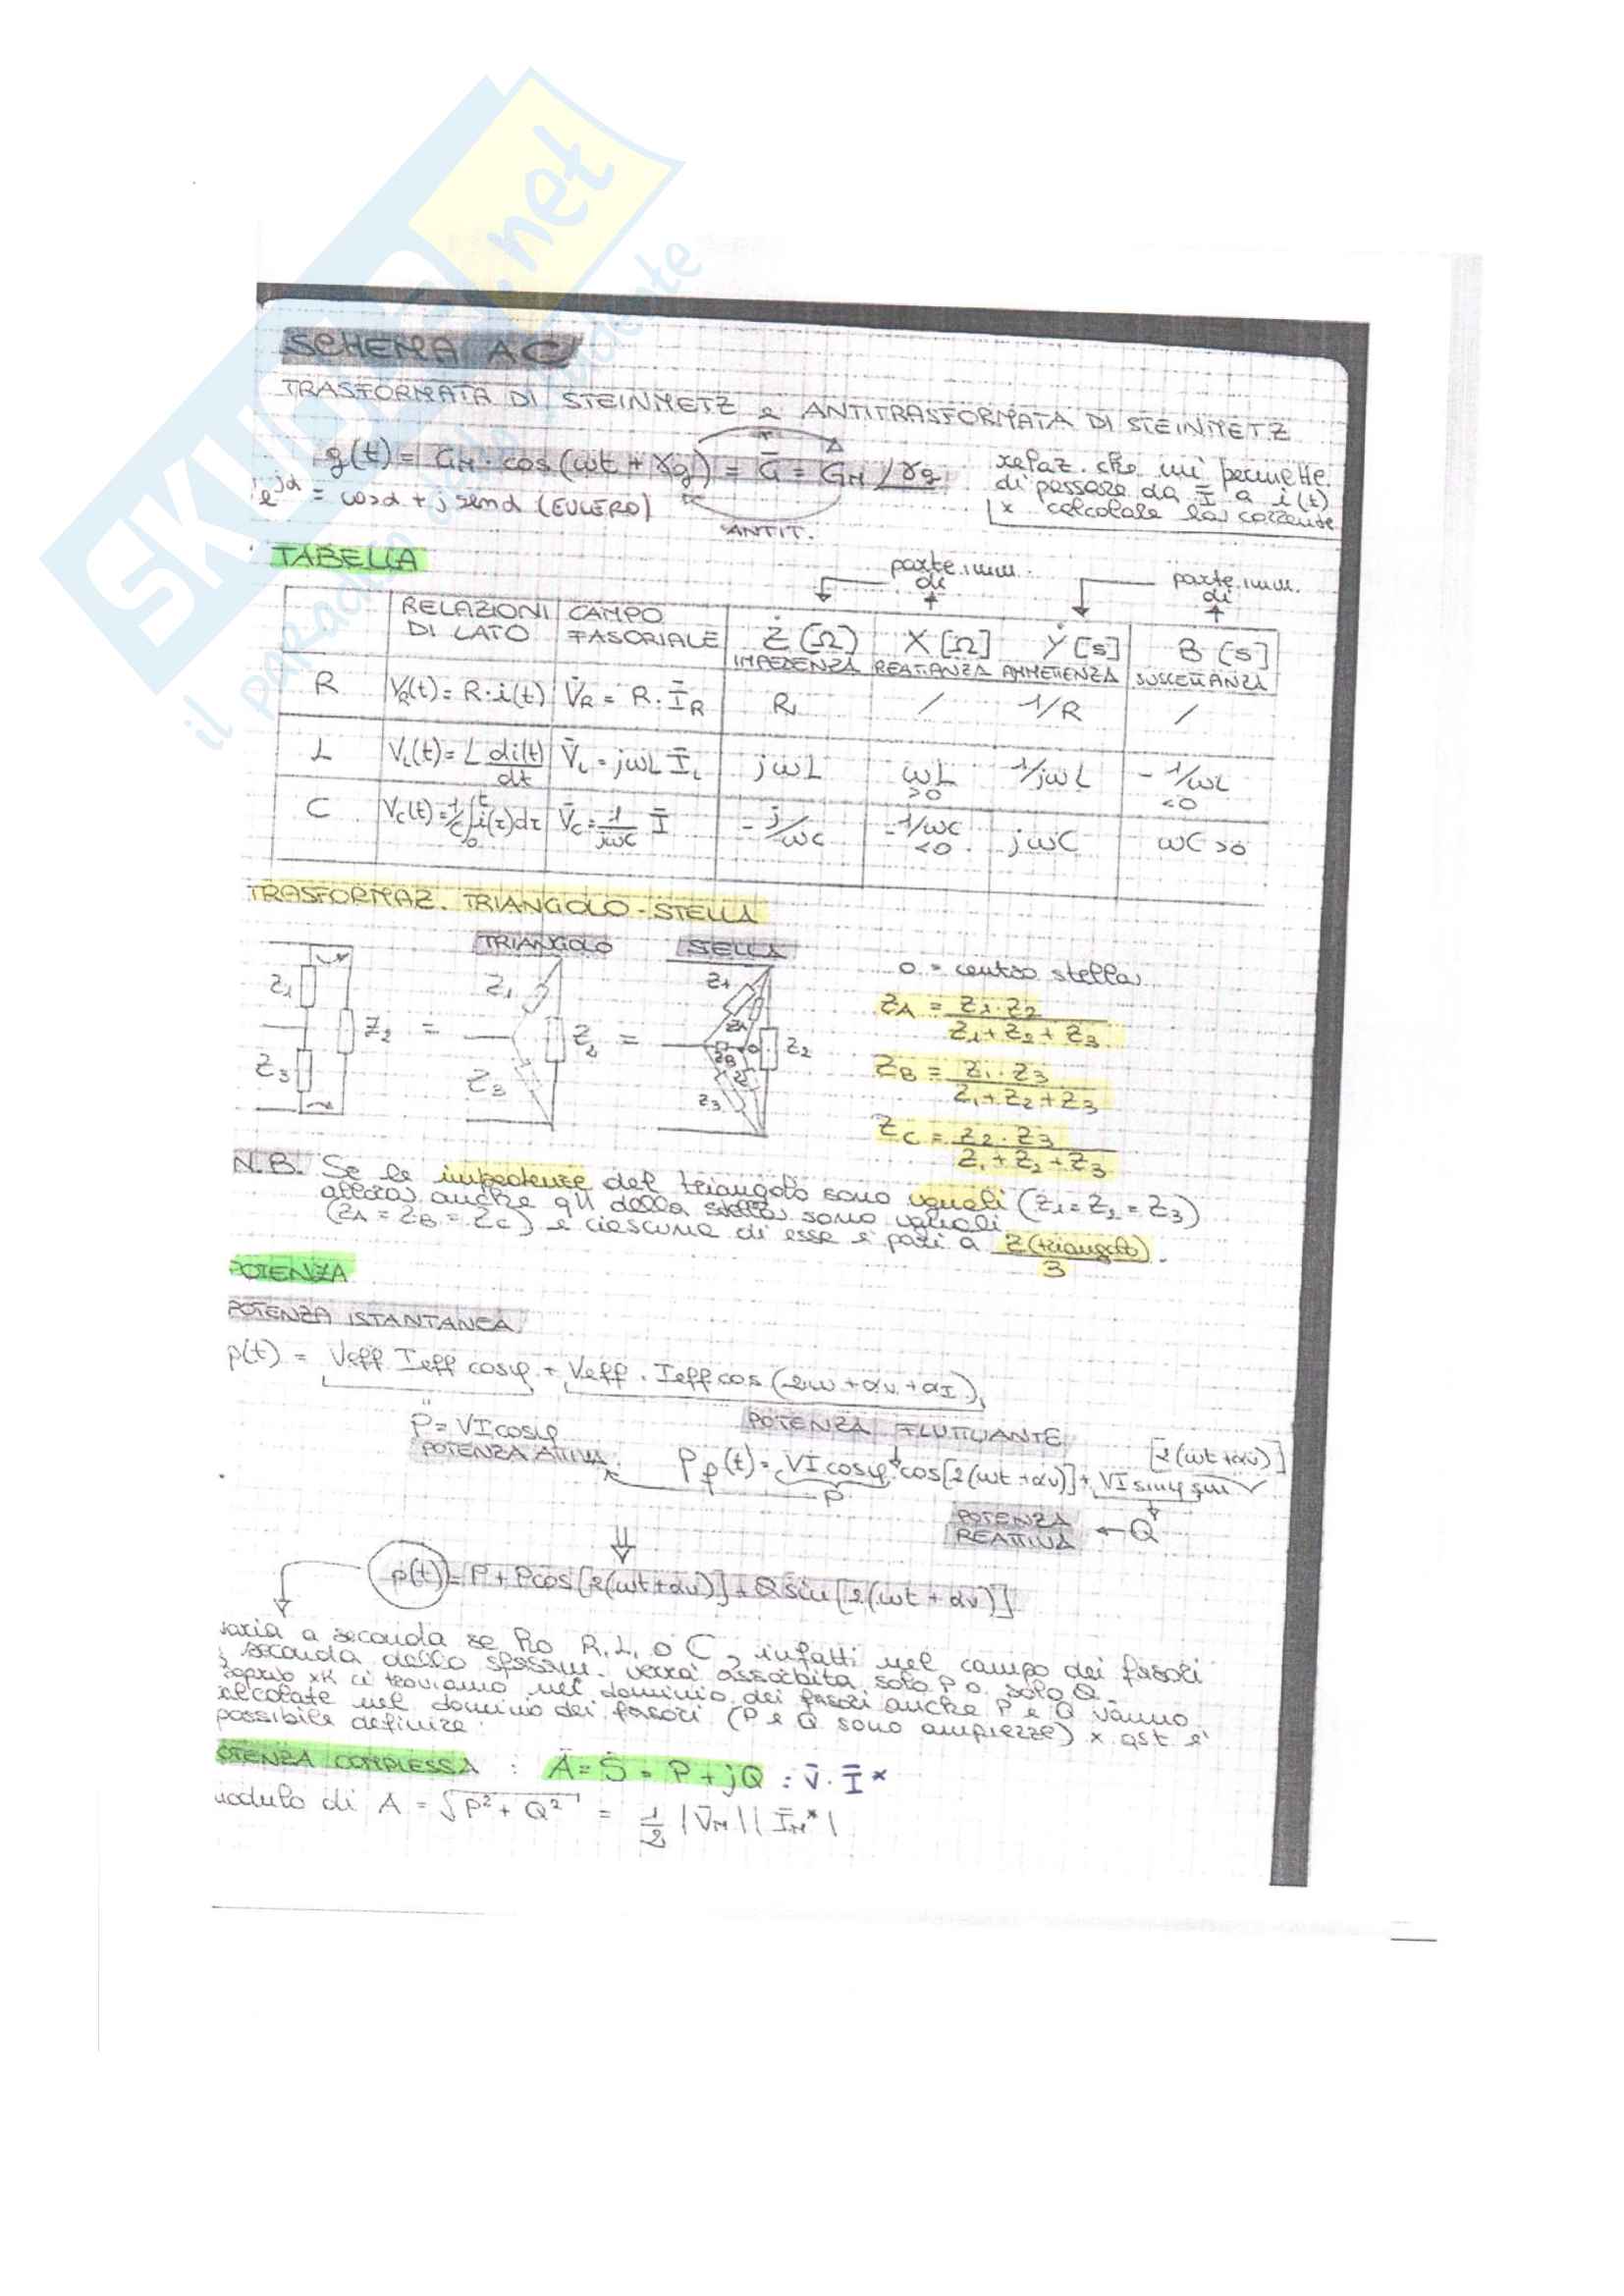 SKUOLA.net
il paradiso dello studente
SCHEMA AC
TRASFORMATA DI STEINMETZ e ANTITRASFORMATA DI STEINMETZ
g(t) = GM · cos(ωt + γg) = Ḡ = GM /γg
relaz. che mi permette
di passare da Ī a i(t)
x calcolare la corrente
e^jα = cosα + j senα (EULERO)
ANTIT.
TABELLA
parte imm. di
parte imm. di
RELAZIONI DI LATO CAMPO FASORIALE Ż [Ω] X [Ω] Ẏ [s] B [s]
IMPEDENZA REATTANZA AMMETTENZA SUSCETTANZA
R VR(t) = R·i(t) V̄R = R·ĪR R / 1/R /
L VL(t) = L di(t)/dt V̄L = jωL ĪL jωL ωL >0 1/jωL - 1/ωL <0
C VC(t) = 1/C ∫₀ᵗ i(τ)dτ V̄C = 1/jωC Ī - j/ωC - 1/ωC <0 jωC ωC >0
TRASFORMAZ. TRIANGOLO-STELLA
TRIANGOLO STELLA
Z1 Z2 Z3 = Z1 Z2 Z3 = Z1 ZA ZB Z2 Z3
O = centro stella
ZA = Z1 · Z2 / Z1 + Z2 + Z3
ZB = Z1 · Z3 / Z1 + Z2 + Z3
ZC = Z2 · Z3 / Z1 + Z2 + Z3
N.B. Se le impedenze del triangolo sono uguali (Z1 = Z2 = Z3)
allora anche qll della stella sono uguali
(ZA = ZB = ZC) e ciascuna di esse è pari a Z(triangolo)/3.
POTENZA
POTENZA ISTANTANEA
p(t) = Veff Ieff cosφ + Veff · Ieff cos (2ω + αv + αI)
P = VI cosφ
POTENZA ATTIVA
POTENZA FLUTTUANTE
Pf(t) = VI cosφ cos[2(ωt + αv)] + VI sinφ sin [2(ωt + αv)]
P
POTENZA REATTIVA ← Q
p(t) = P + P cos [2(ωt + αv)] + Q sin [2(ωt + αv)]
varia a seconda se ho R, L, o C, infatti nel campo dei fasori
seconda dello sfasam. verrà assorbita solo P o solo Q.
proprio xk ci troviamo nel dominio dei fasori anche P e Q vanno
calcolate nel dominio dei fasori (P e Q sono ampiezze) x qst è
possibile definire:
POTENZA COMPLESSA : Ā = Ṡ = P + jQ = V̄ · Ī*
modulo di A = √P² + Q² = 1/2 |V̄M| |ĪM*|